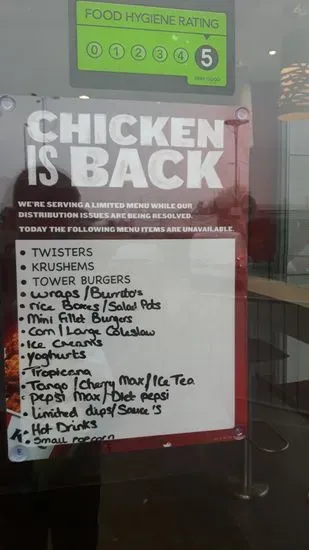 FOOD HYGIENE RATING
0 1 2 3 4 5
VERY GOOD
CHICKEN
IS BACK
WE'RE SERVING A LIMITED MENU WHILE OUR
DISTRIBUTION ISSUES ARE BEING RESOLVED.
TODAY THE FOLLOWING MENU ITEMS ARE UNAVAILABLE.
• TWISTERS
• KRUSHEMS
• TOWER BURGERS
• Wraps/Burrito's
• rice Boxes/Salad Pots
• Mini Fillet Burgers
• Corn/Large Coleslaw
• Ice Creams
• yoghurts
Tropicana
• Tango/Cherry Max/Ice Tea
• Pepsi Max/Diet pepsi
• Limited dips/Sauce's
• Hot Drinks
• Small Popcorn